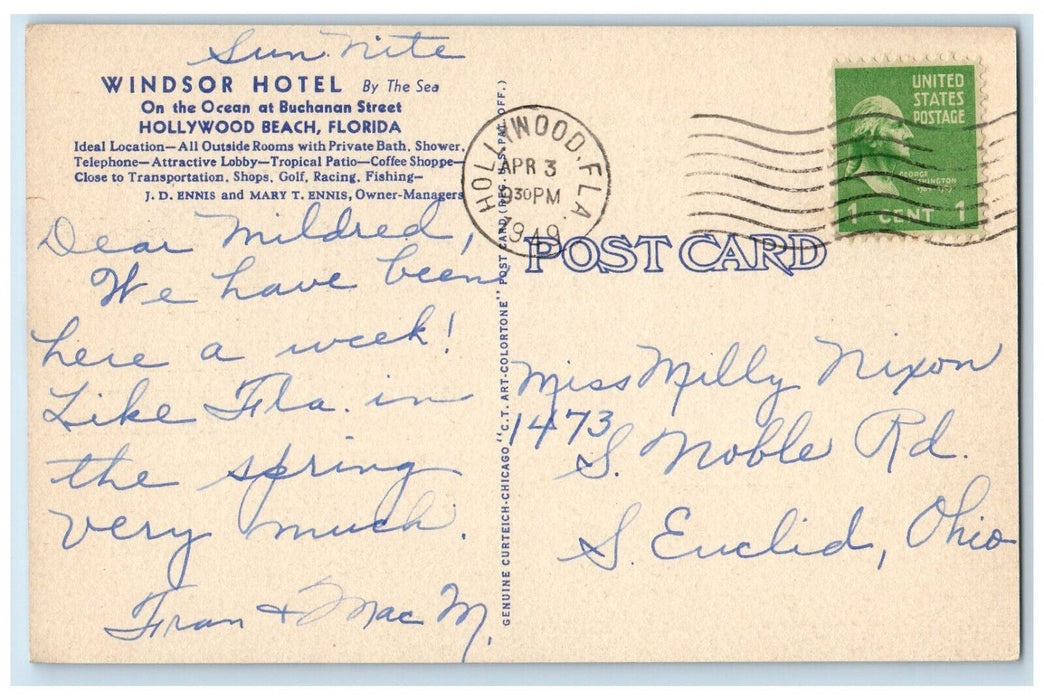 Sun. Nite
WINDSOR HOTEL By The Sea
On the Ocean at Buchanan Street
HOLLYWOOD BEACH, FLORIDA
Ideal Location—All Outside Rooms with Private Bath, Shower,
Telephone—Attractive Lobby—Tropical Patio—Coffee Shoppe—
Close to Transportation, Shops, Golf, Racing, Fishing—
J. D. ENNIS and MARY T. ENNIS, Owner-Managers
Dear Mildred,
We have been
here a week!
Like Fla. in
the spring
very much.
Fran & Mac M.
GENUINE CURTEICH-CHICAGO "C. T. ART-COLORTONE" POST CARD (REG. U.S. PAT. OFF.)
HOLLYWOOD, FLA.
APR 3
930PM
1949
UNITED
STATES
POSTAGE
GEORGE
WASHINGTON
1 CENT 1
POST CARD
Miss Milly Nixon
1473
S. Noble Rd.
S. Euclid, Ohio